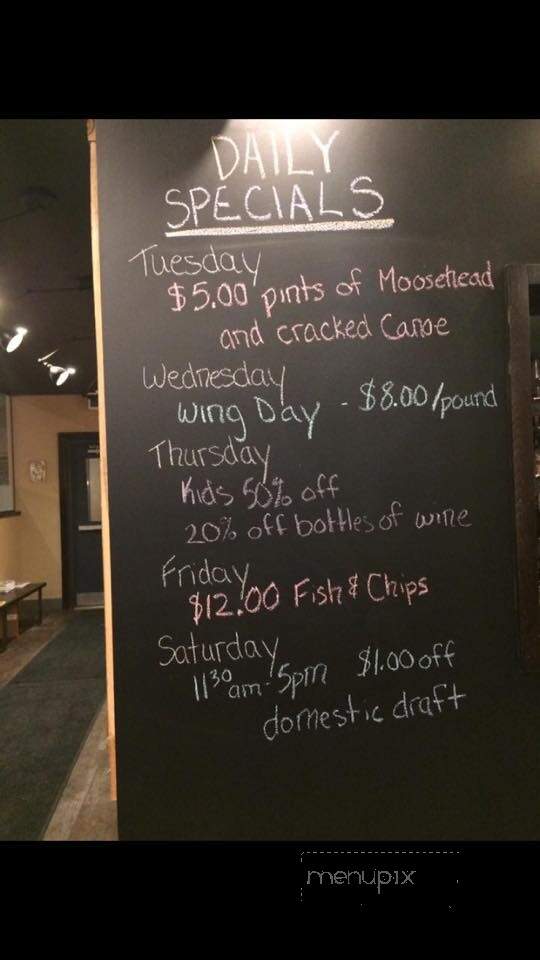 DAILY
SPECIALS
Tuesday
$5.00 pints of Moosehead
and cracked Canoe
Wednesday
Wing Day - $8.00/pound
Thursday
Kids 50% off
20% off bottles of wine
Friday
$12.00 Fish & Chips
Saturday
11³⁰am-5pm $1.00 off
domestic draft
menupix